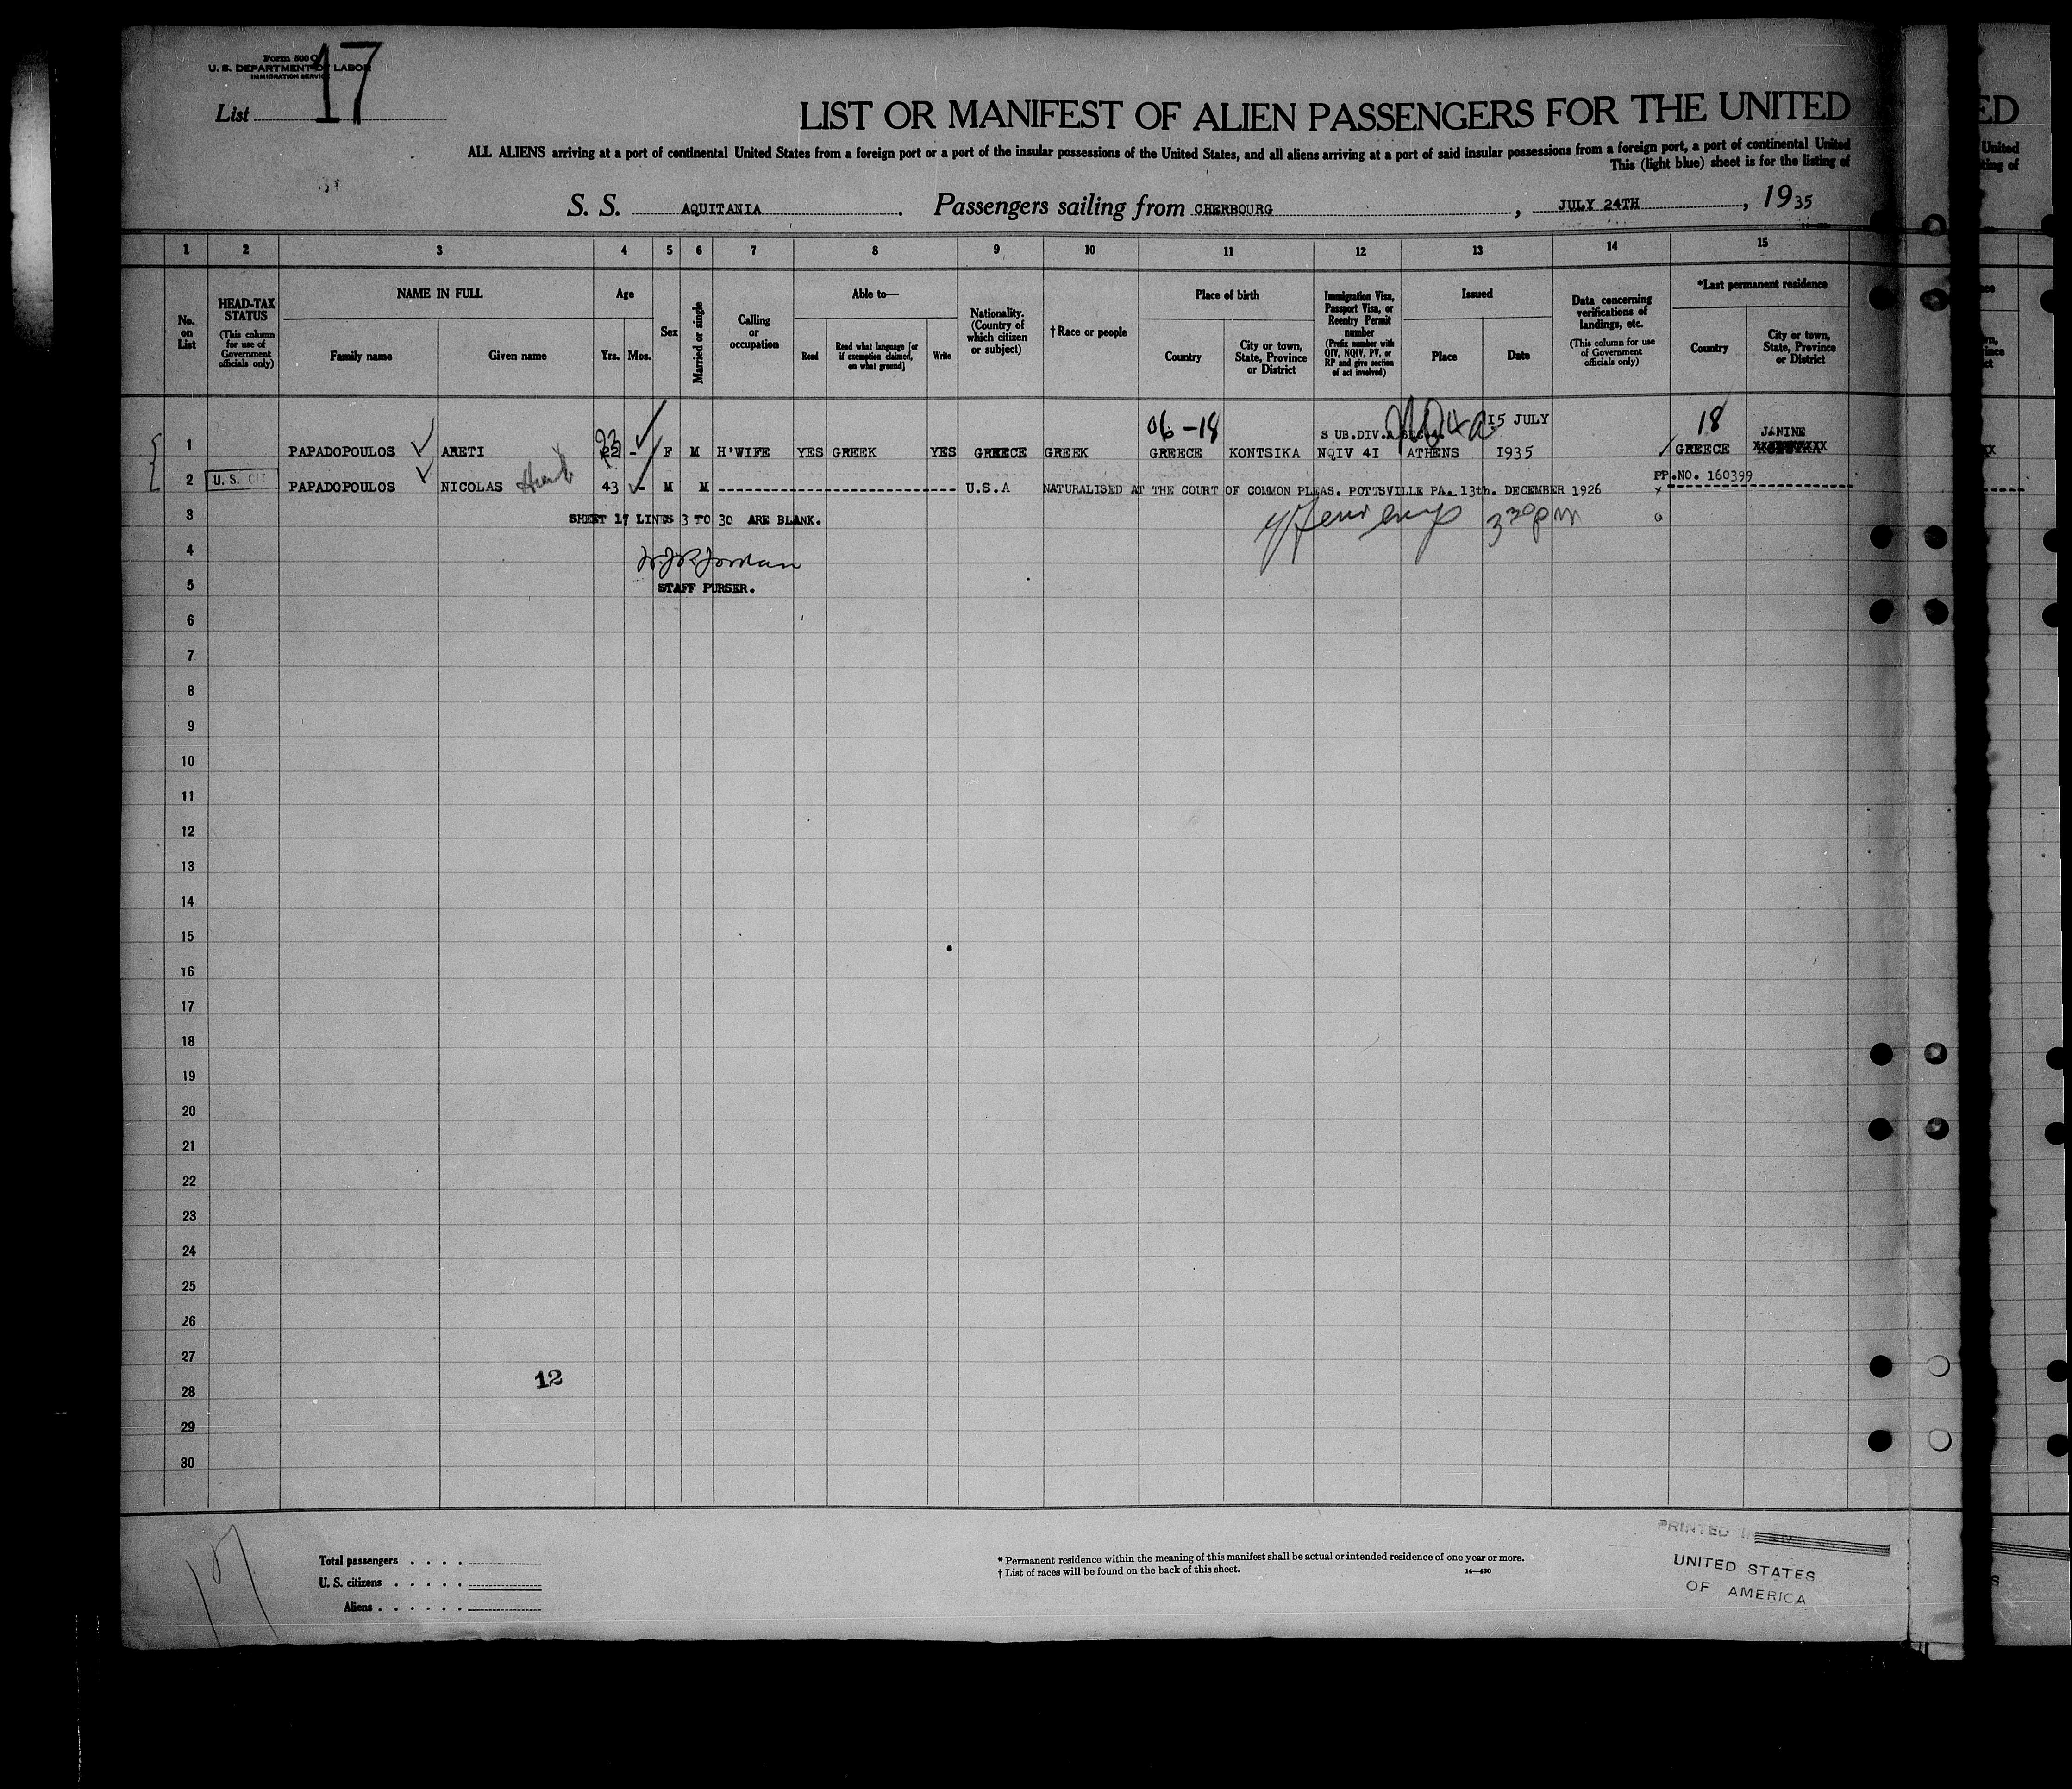 Form 500
U. S. DEPARTMENT OF LABOR
IMMIGRATION SERVICE
List 17
LIST OR MANIFEST OF ALIEN PASSENGERS FOR THE UNITED
ALL ALIENS arriving at a port of continental United States from a foreign port or a port of the insular possessions of the United States, and all aliens arriving at a port of said insular possessions from a foreign port, a port of continental United
This (light blue) sheet is for the listing of
S. S. AQUITANIA. Passengers sailing from CHERBOURG, JULY 24TH, 1935
1 2 3 4 5 6 7 8 9 10 11 12 13 14 15
No. on List
HEAD-TAX STATUS
(This column for use of Government officials only)
NAME IN FULL
Family name
Given name
Age
Yrs. Mos.
Sex
Married or single
Calling or occupation
Able to—
Read
Read what language [or if exemption claimed, on what ground]
Write
Nationality. (Country of which citizen or subject)
†Race or people
Place of birth
Country
City or town, State, Province or District
Immigration Visa, Passport Visa, or Reentry Permit number
(Prefix number with QIV, NQIV, PV, or RP and give section of act involved)
Issued
Place
Date
Data concerning verifications of landings, etc.
(This column for use of Government officials only)
*Last permanent residence
Country
City or town, State, Province or District
06-18 S UB.DIV.A 15 JULY 18 JANINE
1 PAPADOPOULOS ARETI 23 - F M H'WIFE YES GREEK YES GREECE GREEK GREECE KONTSIKA NQIV 41 ATHENS 1935 GREECE
PP.NO. 160399
2 U. S. CIT PAPADOPOULOS NICOLAS 43 - M M U.S.A NATURALISED AT THE COURT OF COMMON PLEAS. POTTSVILLE PA. 13th. DECEMBER 1926
3 SHEET 17 LINES 3 TO 30 ARE BLANK. 3 30 pm
4 Jordan
5 STAFF PURSER.
6
7
8
9
10
11
12
13
14
15
16
17
18
19
20
21
22
23
24
25
26
27
12
28
29
30
Total passengers . . . .
U. S. citizens . . . . .
Aliens . . . . . .
* Permanent residence within the meaning of this manifest shall be actual or intended residence of one year or more.
† List of races will be found on the back of this sheet.
14—430
PRINTED IN
UNITED STATES
OF AMERICA